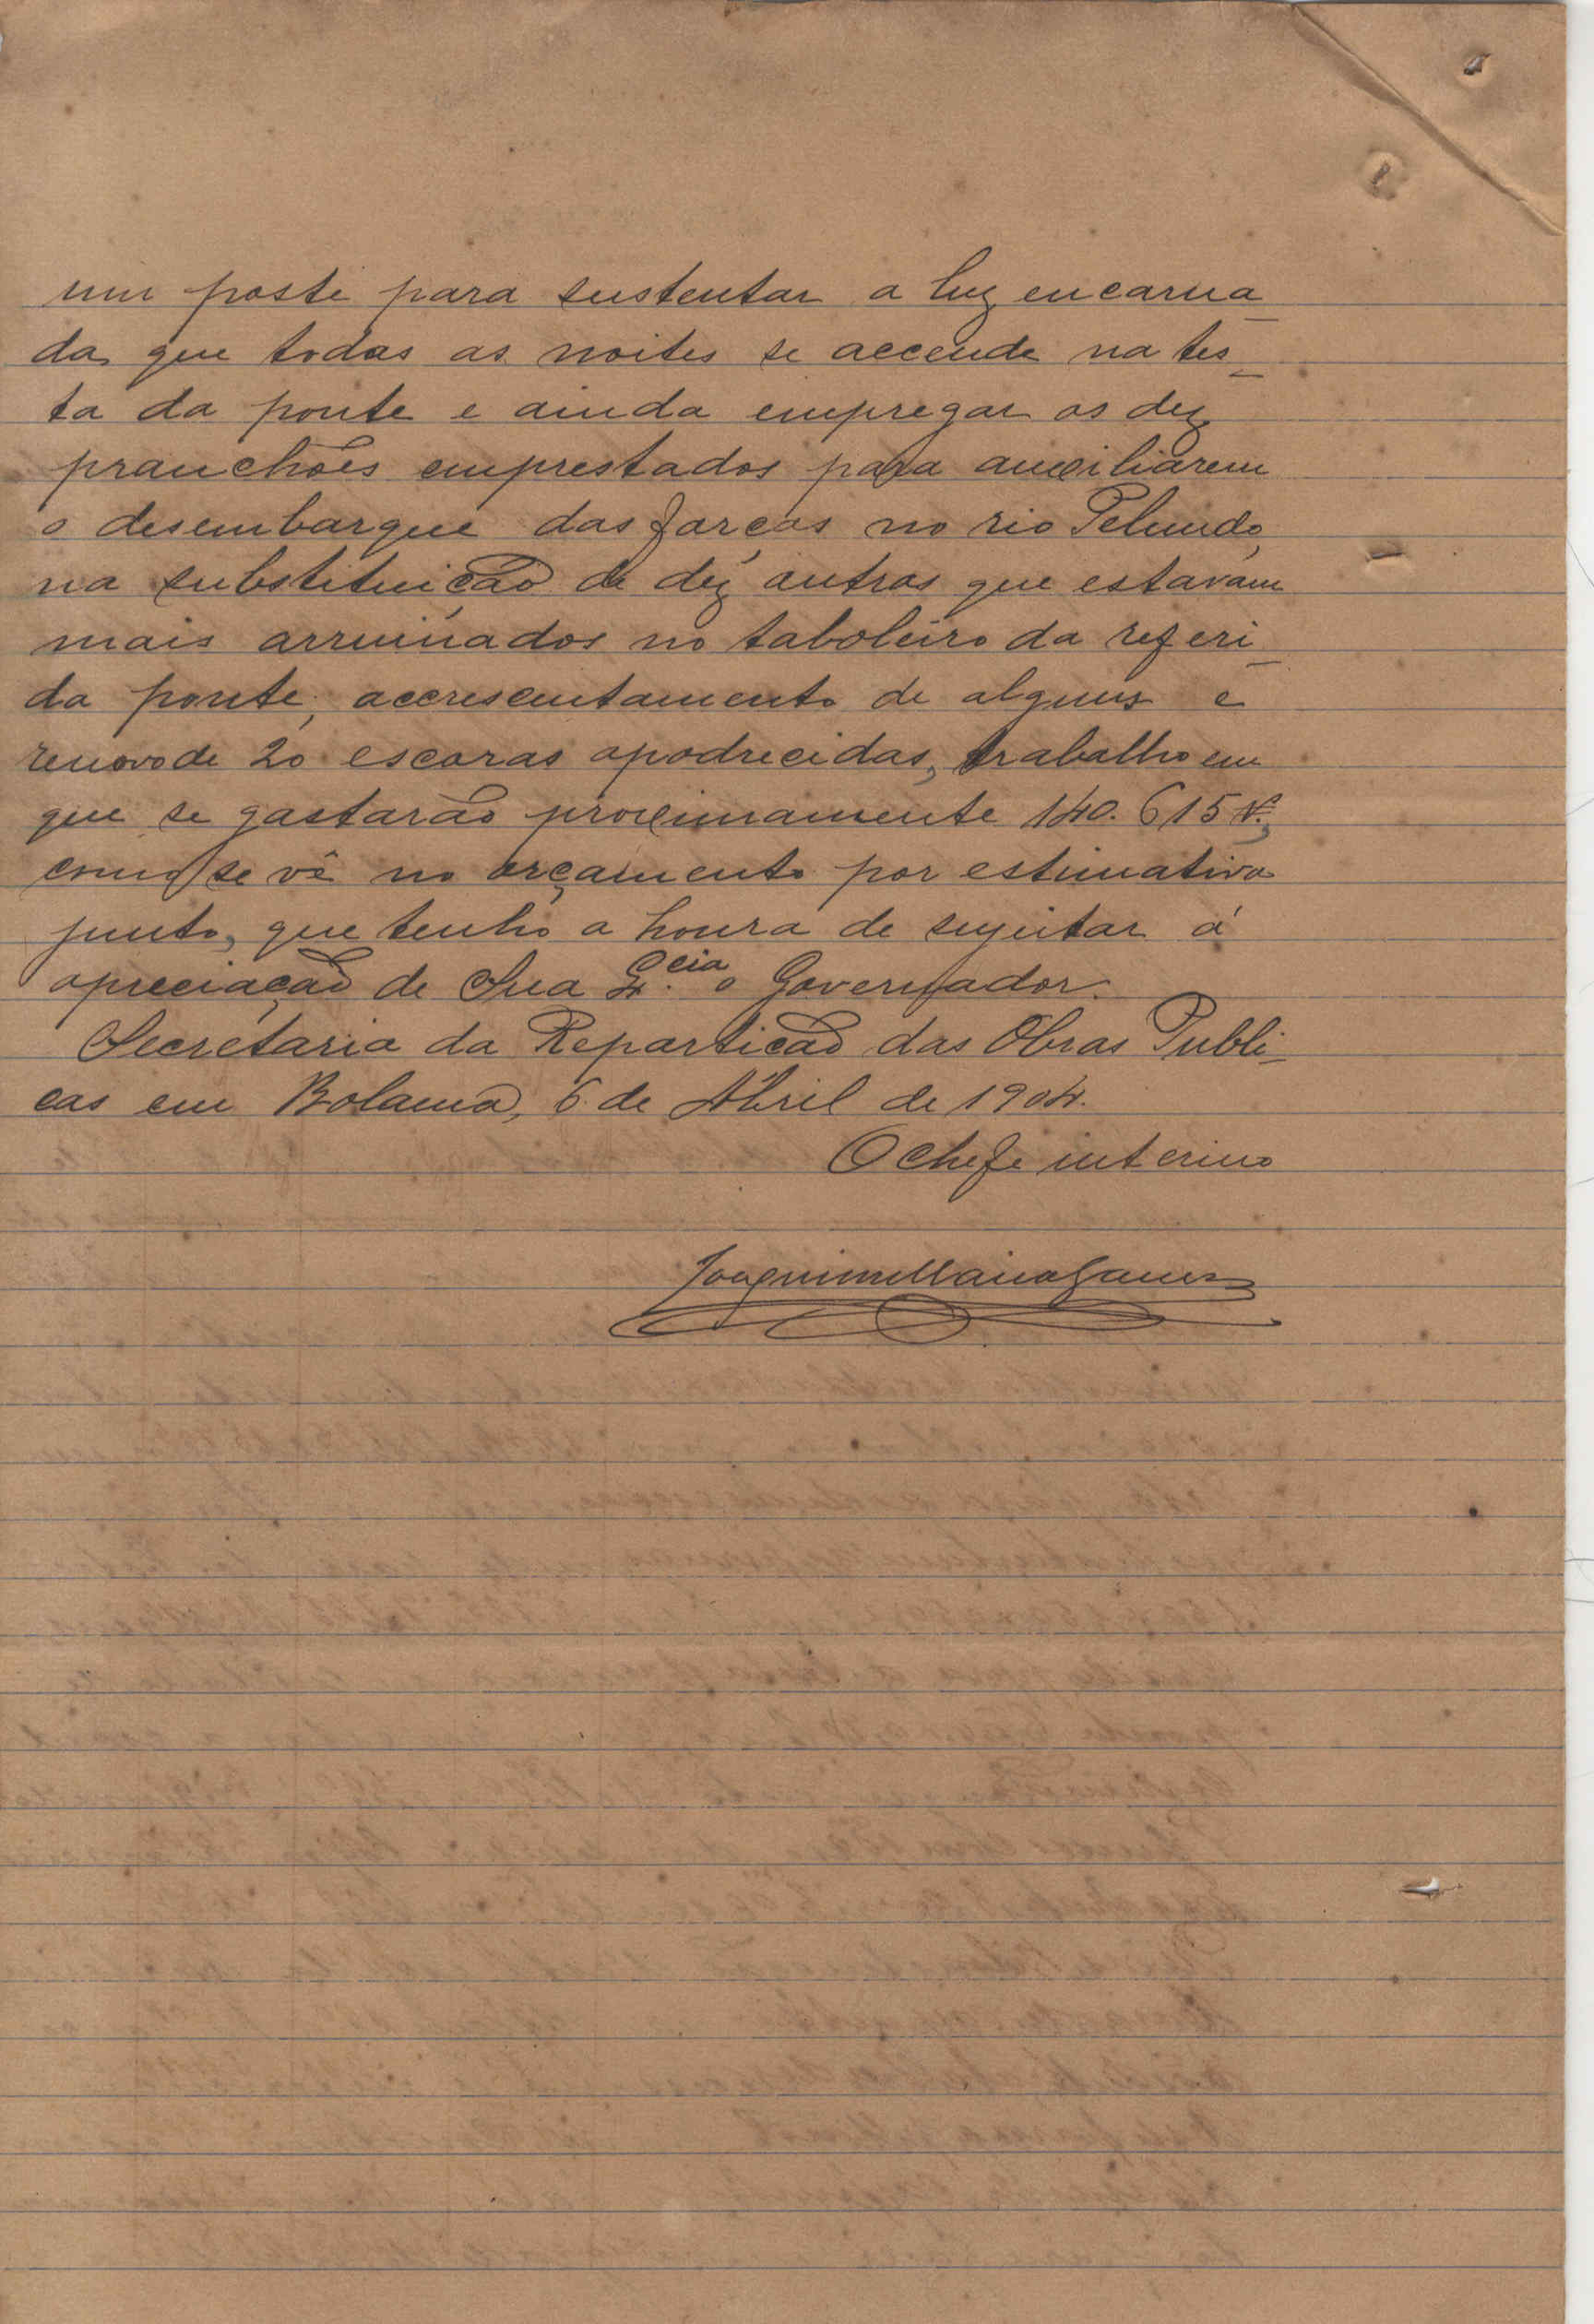 um poste para sustentar a luz encarna-
da que todas as noites se accende na tes-
ta da ponte e ainda empregar os dez
pranchões emprestados para auxiliarem
o desembarque das forças no rio Pelundo,
na substituição de dez outros que estavam
mais arruinados no taboleiro da referi-
da ponte; accrescentamento de alguns e
renovo de 20 escoras apodrecidas, trabalho em
que se gastarão proximamente 140.615 rs.,
como se vê no orçamento por estimativa
junto, que tenho a honra de sugeitar á
apreciação de Sua Ex.cia o Governador.
Secretaria da Repartição das Obras Publi-
cas em Bolama, 6 de Abril de 1904.
O chefe interino
Joaquim Maria